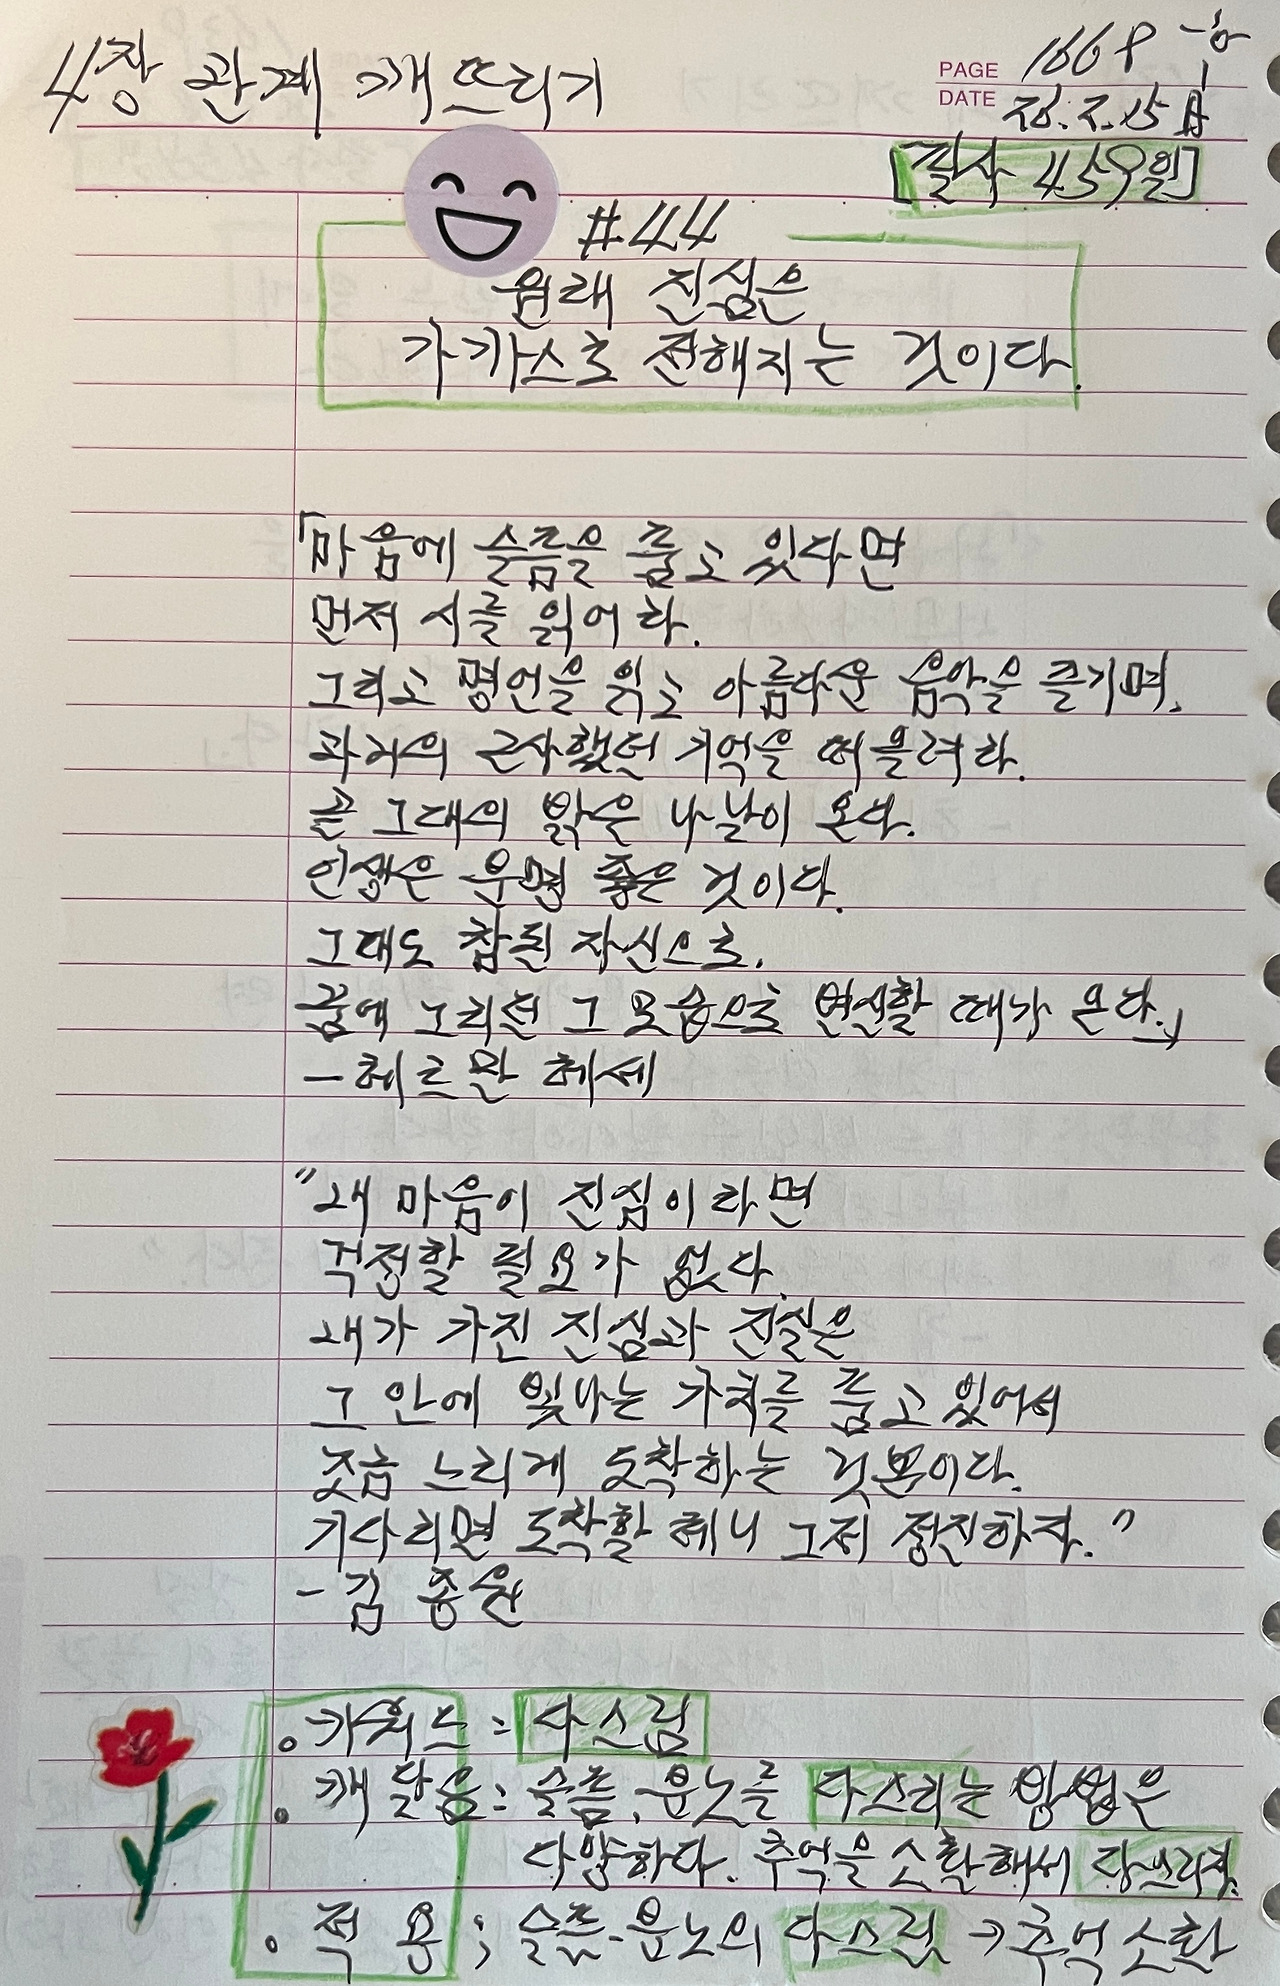 4장 관계 깨뜨리기
PAGE 166P
DATE 26.2.15日
[필사 459일]
#44
원래 진심은
가까스로 전해지는 것이다.
「마음에 슬픔을 품고 있다면
먼저 시를 읽어라.
그리고 명언을 읽고 아름다운 음악을 즐기며,
과거의 근사했던 기억을 떠올려라.
곧 그대의 밝은 나날이 온다.
인생은 운명 좋은 것이다.
그대도 참된 자신으로,
꿈에 그리던 그 모습으로 변신할 때가 온다.」
-헤르만 헤세
"내 마음이 진심이라면
걱정할 필요가 없다.
내가 가진 진심과 진실은
그 안에 빛나는 가치를 품고 있어서
조금 느리게 도착하는 것뿐이다.
기다리면 도착할 테니 그저 정진하자."
-김종원
• 키워드 : 다스림
• 깨달음 : 슬픔, 분노를 다스리는 방법은
다양하다. 추억을 소환해서 다스리자.
• 적용 ; 슬픔·분노의 다스림 → 추억 소환